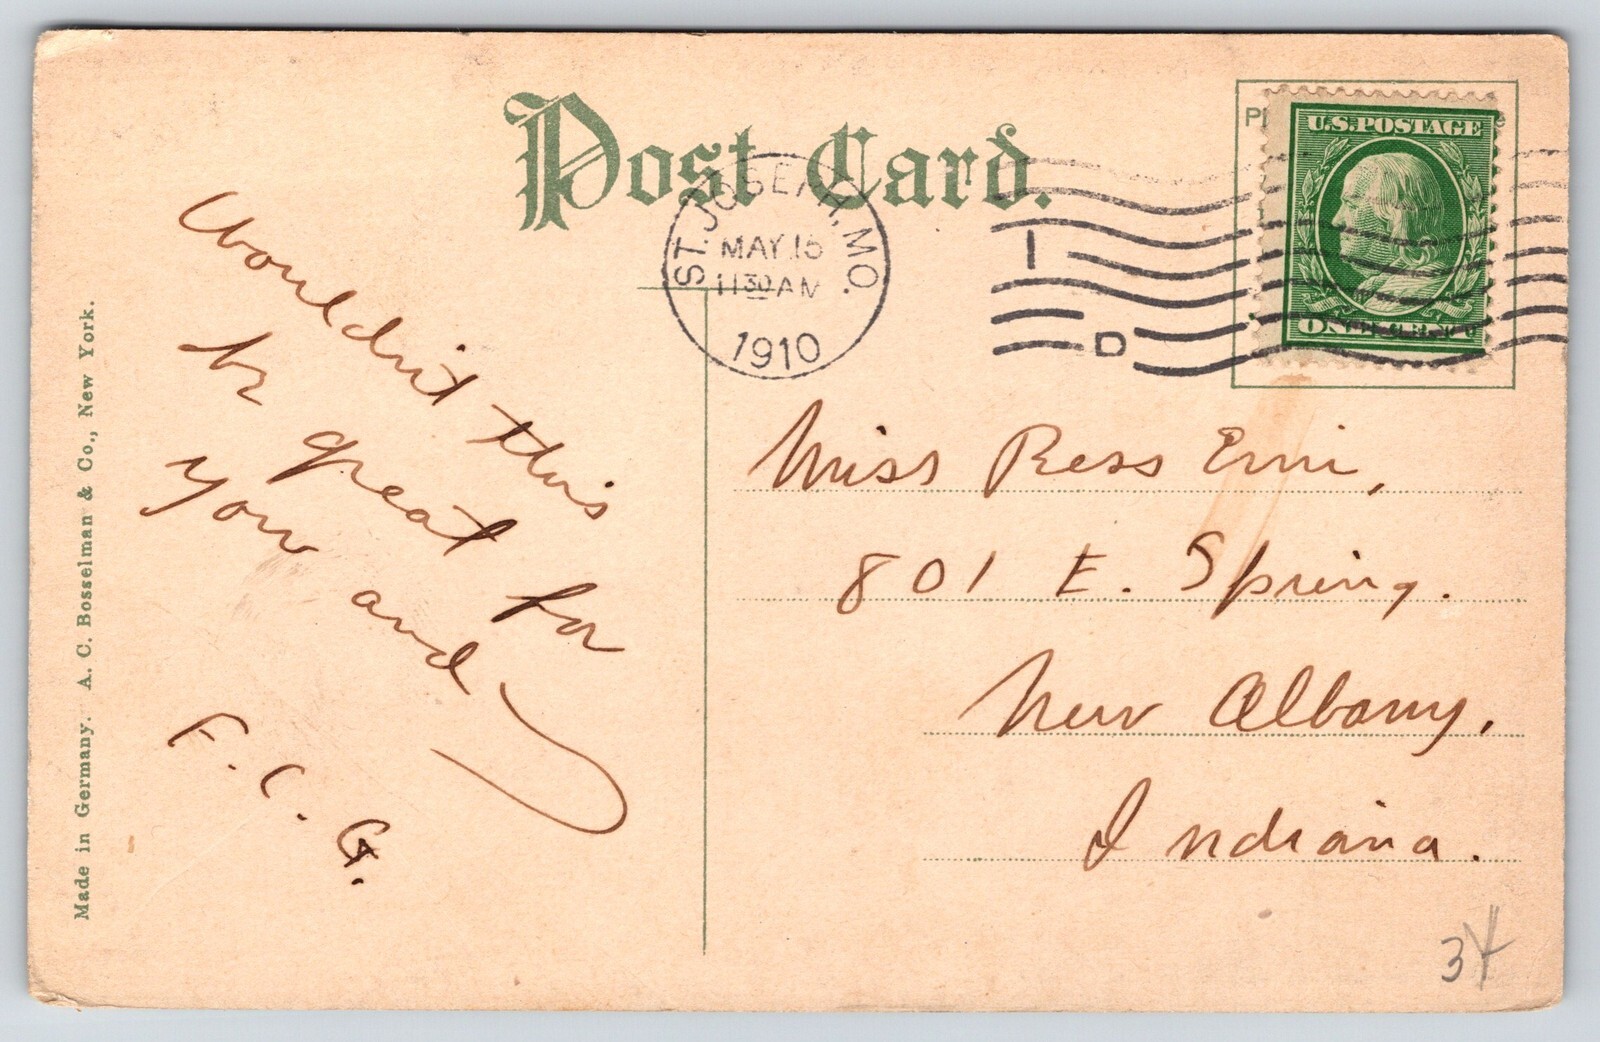 Post Card.
U.S.POSTAGE
ST. JOSEPH, MO.
MAY 15
11 30 AM
1910
I
D
Wouldn't this
be great for
you and
F. C. G.
Miss Bess
801 E. Spring.
New Albany,
Indiana.
Made in Germany. A. C. Bosselman & Co., New York.